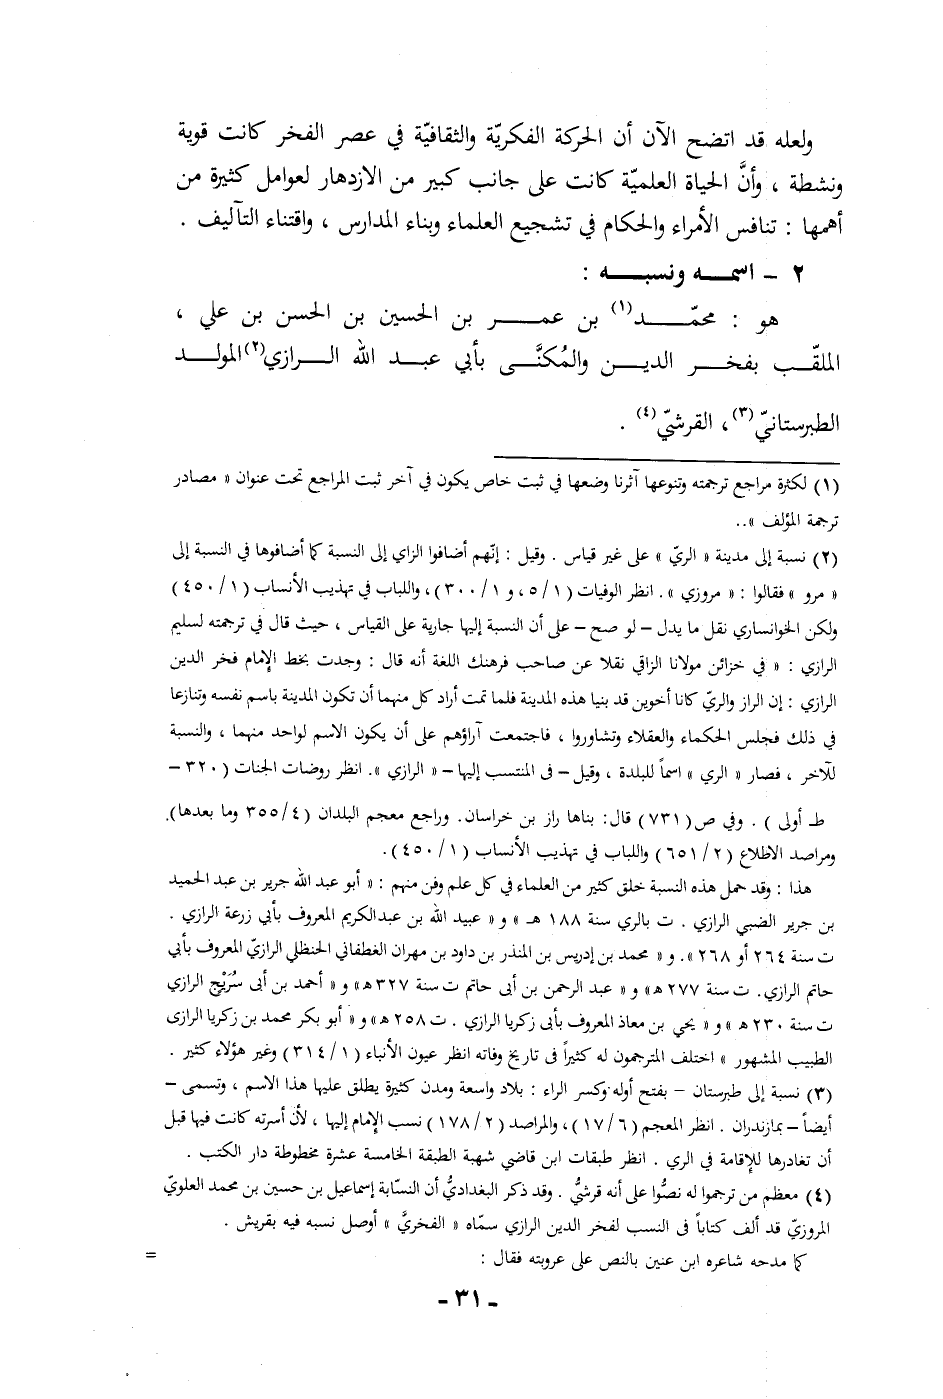 ولعله قد اتضح الآن أن الحركة الفكريّة والثقافيّة في عصر الفخر كانت قوية
ونشطة ، وأنَّ الحياة العلميّة كانت على جانب كبير من الازدهار لعوامل كثيرة من
أهمها : تنافس الأمراء والحكام في تشجيع العلماء وبناء المدارس ، واقتناء التآليف .
٢ - اسمــه ونسبــه :
هو : محمّــد(١) بن عمــر بن الحسين بن الحسن بن علي ،
الملقّب بفخــر الديــن والمُكنَّــى بأبي عبــد الله الــرازي(٢) المولــد
الطبرستانيّ(٣) ، القرشيّ(٤) .
(١) لكثرة مراجع ترجمته وتنوعها آثرنا وضعها في ثبت خاص يكون في آخر ثبت المراجع تحت عنوان « مصادر
ترجمة المؤلف »..
(٢) نسبة إلى مدينة « الريّ » على غير قياس . وقيل : إنّهم أضافوا الزاي إلى النسبة كما أضافوها في النسبة إلى
« مرو » فقالوا : « مروزي » . انظر الوفيات (٥/١ ، و ٣٠٠/١) ، واللباب في تهذيب الأنساب (٤٥٠/١)
ولكن الخوانساري نقل ما يدل – لو صح – على أن النسبة إليها جارية على القياس ، حيث قال في ترجمته لسليم
الرازي : « في خزائن مولانا الزاقي نقلا عن صاحب فرهنك اللغة أنه قال : وجدت بخط الإمام فخر الدين
الرازي : إن الراز والريّ كانا أخوين قد بنيا هذه المدينة فلما تمت أراد كل منهما أن تكون المدينة باسم نفسه وتنازعا
في ذلك فجلس الحكماء والعقلاء وتشاوروا ، فاجتمعت آراؤهم على أن يكون الاسم لواحد منهما ، والنسبة
للآخر ، فصار « الري » اسماً للبلدة ، وقيل – فى المنتسب إليها – « الرازي ». انظر روضات الجنات (٣٢٠ –
طـ أولى ) . وفي ص (٧٣١) قال: بناها راز بن خراسان. وراجع معجم البلدان (٣٥٥/٤ وما بعدها).
ومراصد الاطلاع (٦٥١/٢) واللباب في تهذيب الأنساب (٤٥٠/١).
هذا : وقد حمل هذه النسبة خلق كثير من العلماء في كل علم وفن منهم : « أبو عبد الله جرير بن عبد الحميد
بن جرير الضبي الرازي . ت بالري سنة ١٨٨ هـ » و « عبيد الله بن عبدالكريم المعروف بأبي زرعة الرازي .
ت سنة ٢٦٤ أو ٢٦٨ ». و « محمد بن إدريس بن المنذر بن داود بن مهران الغطفاني الحنظلي الرازيّ المعروف بأبي
حاتم الرازي. ت سنة ٢٧٧ هـ» و « عبد الرحمن بن أبى حاتم ت سنة ٣٢٧ هـ» و « أحمد بن أبى سُرَيْج الرازي
ت سنة ٢٣٠ هـ » و « يحي بن معاذ المعروف بأبى زكريا الرازي . ت ٢٥٨ هـ» و « أبو بكر محمد بن زكريا الرازى
الطبيب المشهور » اختلف المترجمون له كثيراً فى تاريخ وفاته انظر عيون الأنباء (٣١٤/١) وغير هؤلاء كثير .
(٣) نسبة إلى طبرستان – بفتح أوله وكسر الراء : بلاد واسعة ومدن كثيرة يطلق عليها هذا الاسم ، وتسمى –
أيضاً – بمازندران . انظر المعجم (١٧/٦) ، والمراصد (١٧٨/٢) نسب الإمام إليها ، لأن أسرته كانت فيها قبل
أن تغادرها للإقامة في الري . انظر طبقات ابن قاضي شهبة الطبقة الخامسة عشرة مخطوطة دار الكتب .
(٤) معظم من ترجموا له نصُّوا على أنه قرشيٌّ . وقد ذكر البغداديُّ أن النسّابة إسماعيل بن حسين بن محمد العلويّ
المروزيّ قد ألف كتاباً فى النسب لفخر الدين الرازي سمّاه « الفخريَّ » أوصل نسبه فيه بقريش .
كما مدحه شاعره ابن عنين بالنص على عروبته فقال :
=
- ٣١ -